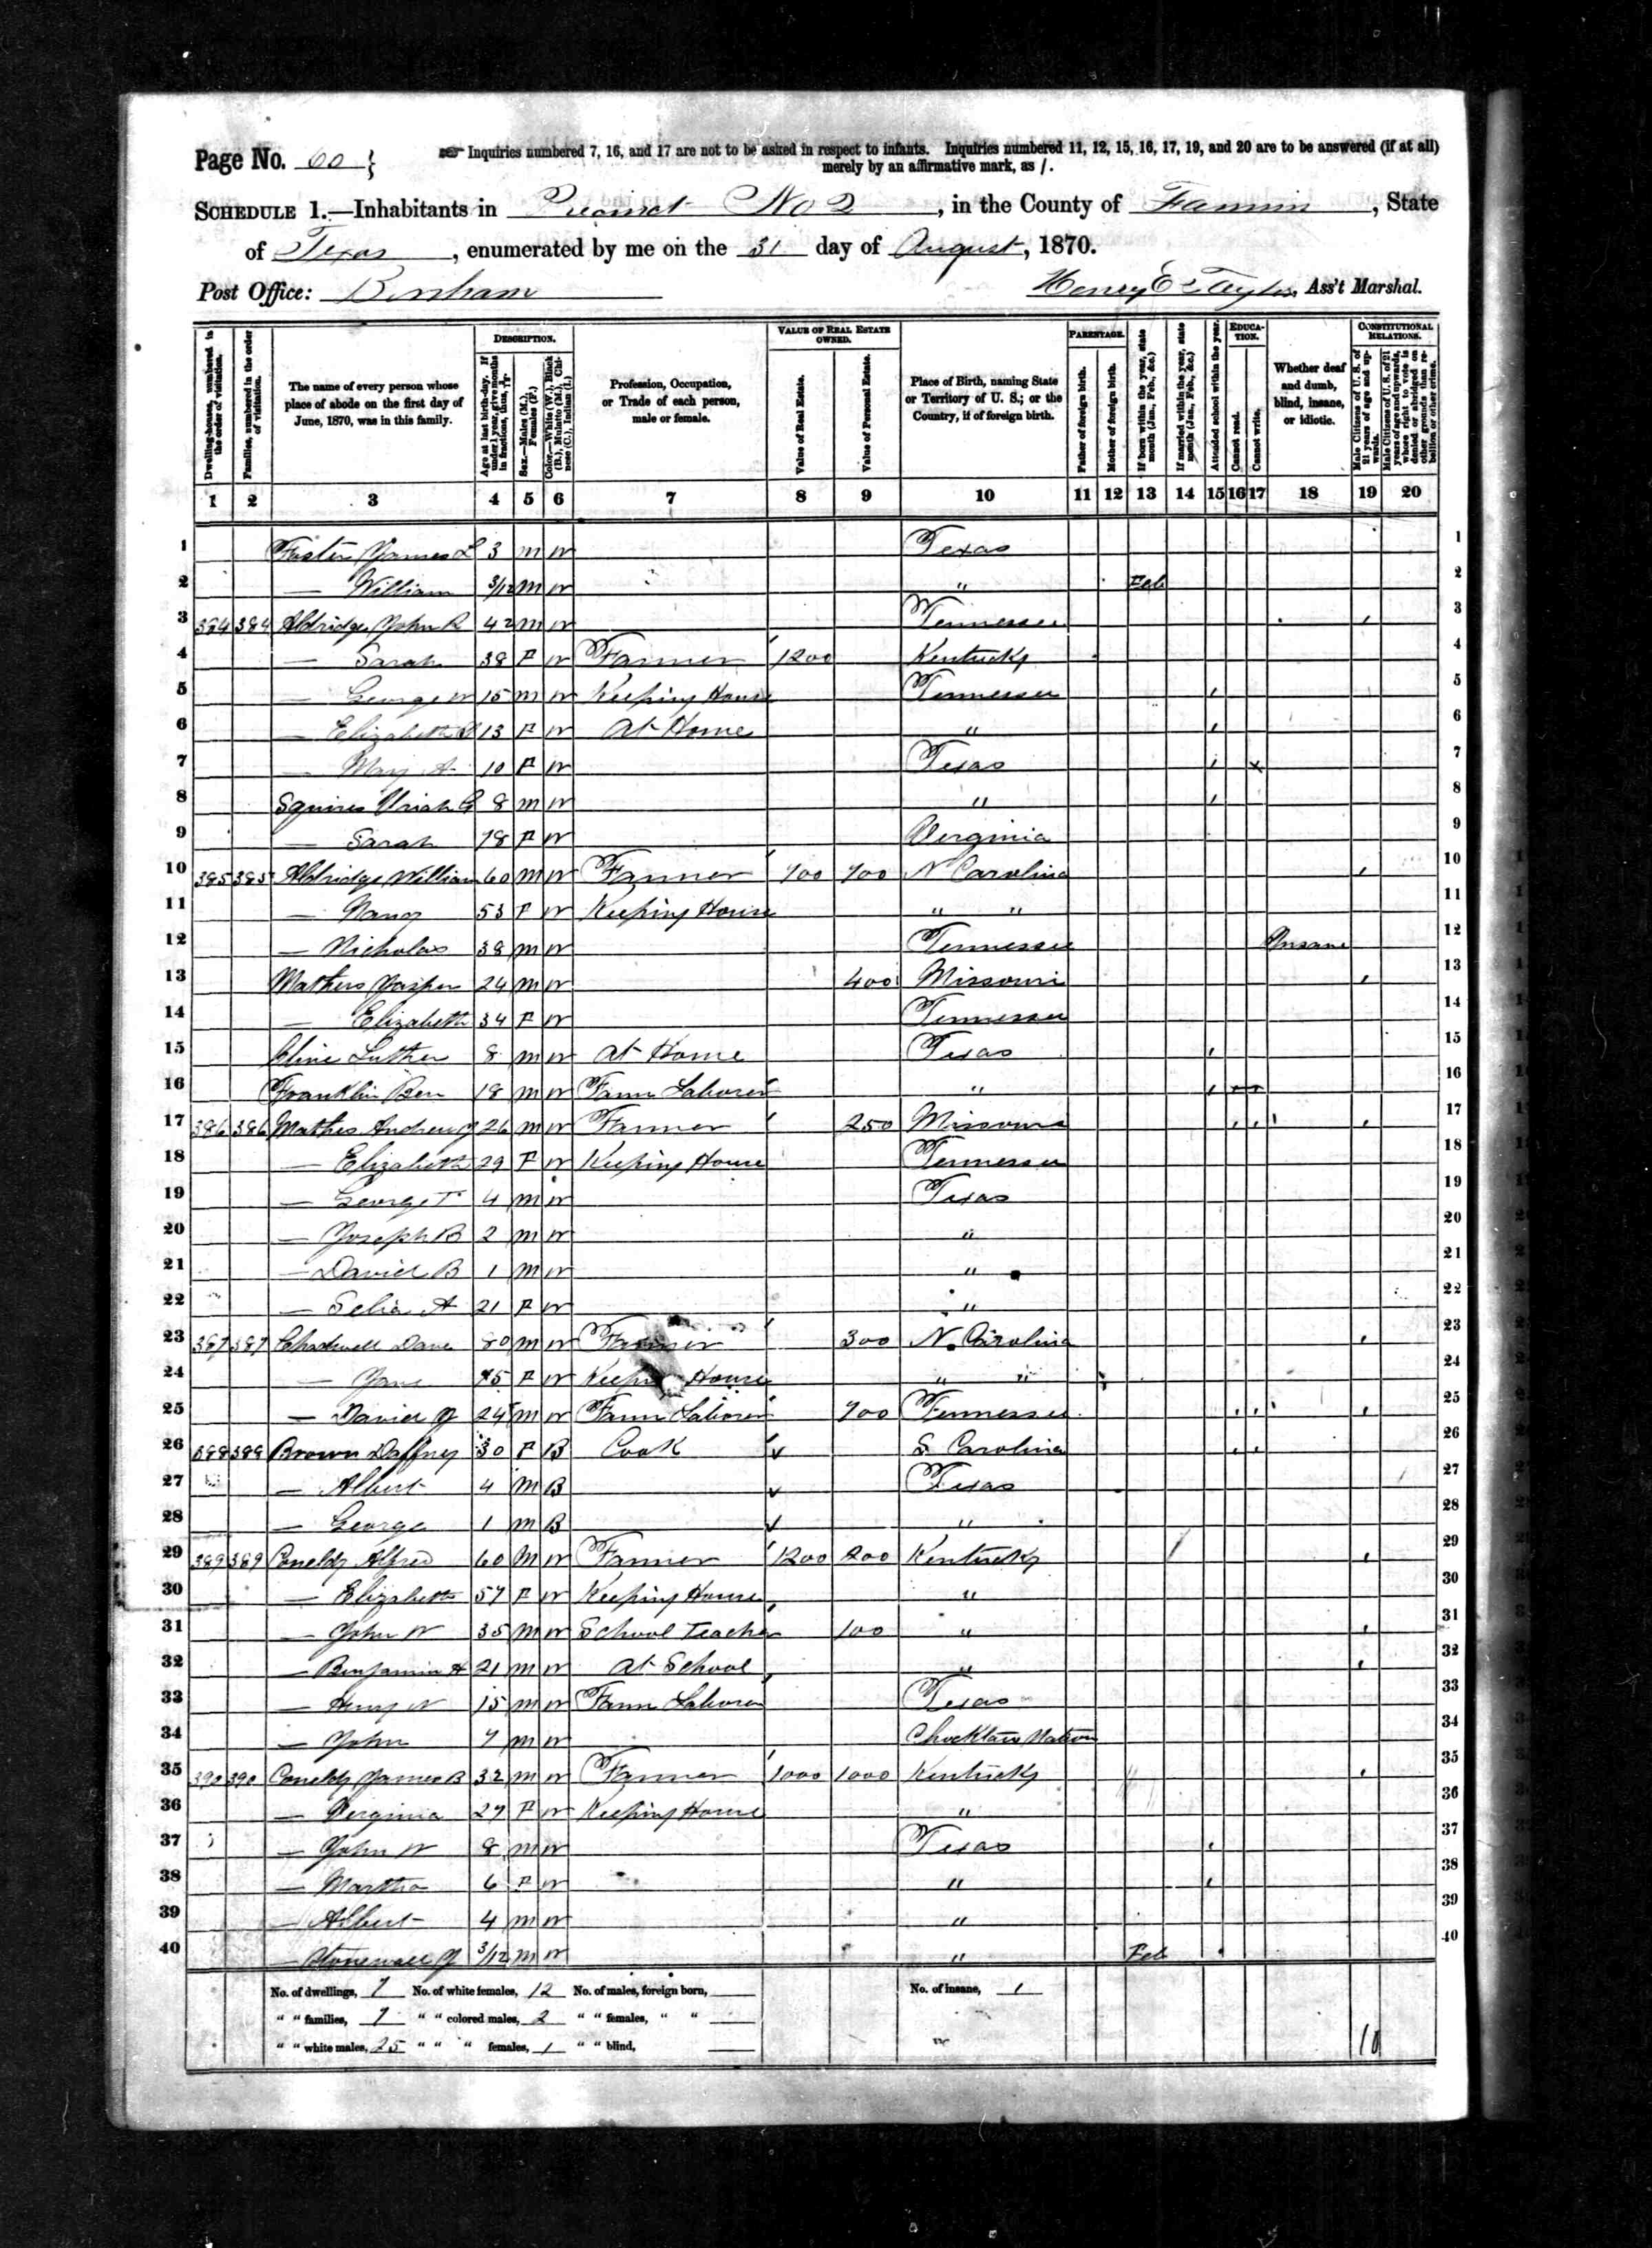 Page No. 60 } Inquiries numbered 7, 16, and 17 are not to be asked in respect to infants. Inquiries numbered 11, 12, 15, 16, 17, 19, and 20 are to be answered (if at all)
merely by an affirmative mark, as /.
SCHEDULE 1.—Inhabitants in Precinct No 2, in the County of Fannin, State
of Texas, enumerated by me on the 31 day of August, 1870.
Post Office: Bonham Henry E Taylor, Ass't Marshal.
Dwelling-houses, numbered in the order of visitation.
Families, numbered in the order of visitation.
The name of every person whose place of abode on the first day of June, 1870, was in this family.
DESCRIPTION.
Age at last birth-day. If under 1 year, give months in fractions, thus, 3/12.
Sex.—Males (M.), Females (F.)
Color.—White (W.), Black (B.), Mulatto (M.), Chinese (C.), Indian (I.)
Profession, Occupation, or Trade of each person, male or female.
VALUE OF REAL ESTATE OWNED.
Value of Real Estate.
Value of Personal Estate.
Place of Birth, naming State or Territory of U. S.; or the Country, if of foreign birth.
PARENTAGE.
Father of foreign birth.
Mother of foreign birth.
If born within the year, state month (Jan., Feb., &c.)
If married within the year, state month (Jan., Feb., &c.)
Attended school within the year.
EDUCATION.
Cannot read.
Cannot write.
Whether deaf and dumb, blind, insane, or idiotic.
CONSTITUTIONAL RELATIONS.
Male Citizens of U. S. of 21 years of age and upwards.
Male Citizens of U. S. of 21 years of age and upwards, whose right to vote is denied or abridged on other grounds than rebellion or other crime.
1 2 3 4 5 6 7 8 9 10 11 12 13 14 15 16 17 18 19 20
1 Foster James L 3 m w Texas 1
2 — William 3/12 m w " Feb 2
3 384 384 Aldridge John R 42 m w Tennessee / 3
4 — Sarah 38 F w Farmer 1200 Kentucky 4
5 — George W 15 m w Keeping House Tennessee / 5
6 — Elizabeth 13 F w At Home " / 6
7 — Mary A 10 F w Texas / x 7
8 Squires Uriah G 8 m w " / 8
9 — Sarah 78 F w Verginia 9
10 385 385 Aldridge William 60 m w Farmer 700 700 N Carolina / 10
11 — Nancy 53 F w Keeping House " " 11
12 — Nicholas 38 m w Tennessee Insane 12
13 Mathers Jasper 24 m w 400 Missouri / 13
14 — Elizabeth 34 F w Tennessee 14
15 Cline Luther 8 m w At Home Texas / 15
16 Franklin Ben 18 m w Farm Laborer " / 16
17 386 386 Mathes Andrew J 26 m w Farmer 250 Missouri / / / 17
18 — Elizabeth 29 F w Keeping House Tennessee 18
19 — George T 4 m w Texas 19
20 — Joseph B 2 m w " 20
21 — David B 1 m w " 21
22 — Selia A 21 F w " 22
23 387 387 Chadwell Dave 80 m w Farmer 300 N. Carolina / 23
24 — Jane 75 F w Keeping House " " 24
25 — David J 24 m w Farm Laborer 700 Tennessee / / / 25
26 388 388 Brown Daffney 30 F B Cook S Carolina / / 26
27 — Albert 4 m B Texas 27
28 — George 1 m B " 28
29 389 389 Coneldy Alfred 60 m w Farmer 1200 200 Kentucky / 29
30 — Elizabeth 57 F w Keeping House " 30
31 — John W 35 m w School Teacher 100 " / 31
32 — Benjamin H 21 m w At School " / 32
33 — Henry N 15 m w Farm Laborer Texas 33
34 — John 7 m w Chocktaw Nation 34
35 390 390 Coneldy James B 32 m w Farmer 1000 1000 Kentucky / 35
36 — Verginia 27 F w Keeping House " 36
37 — John W 8 m w Texas / 37
38 — Martha 6 F w " / 38
39 — Albert 4 m w " 39
40 — Stonewall J 3/12 m w " Feb 40
No. of dwellings, 7 No. of white females, 12 No. of males, foreign born, No. of insane, 1
" " families, 7 " " colored males, 2 " " females, " "
" " white males, 25 " " " females, 1 " " blind, 10